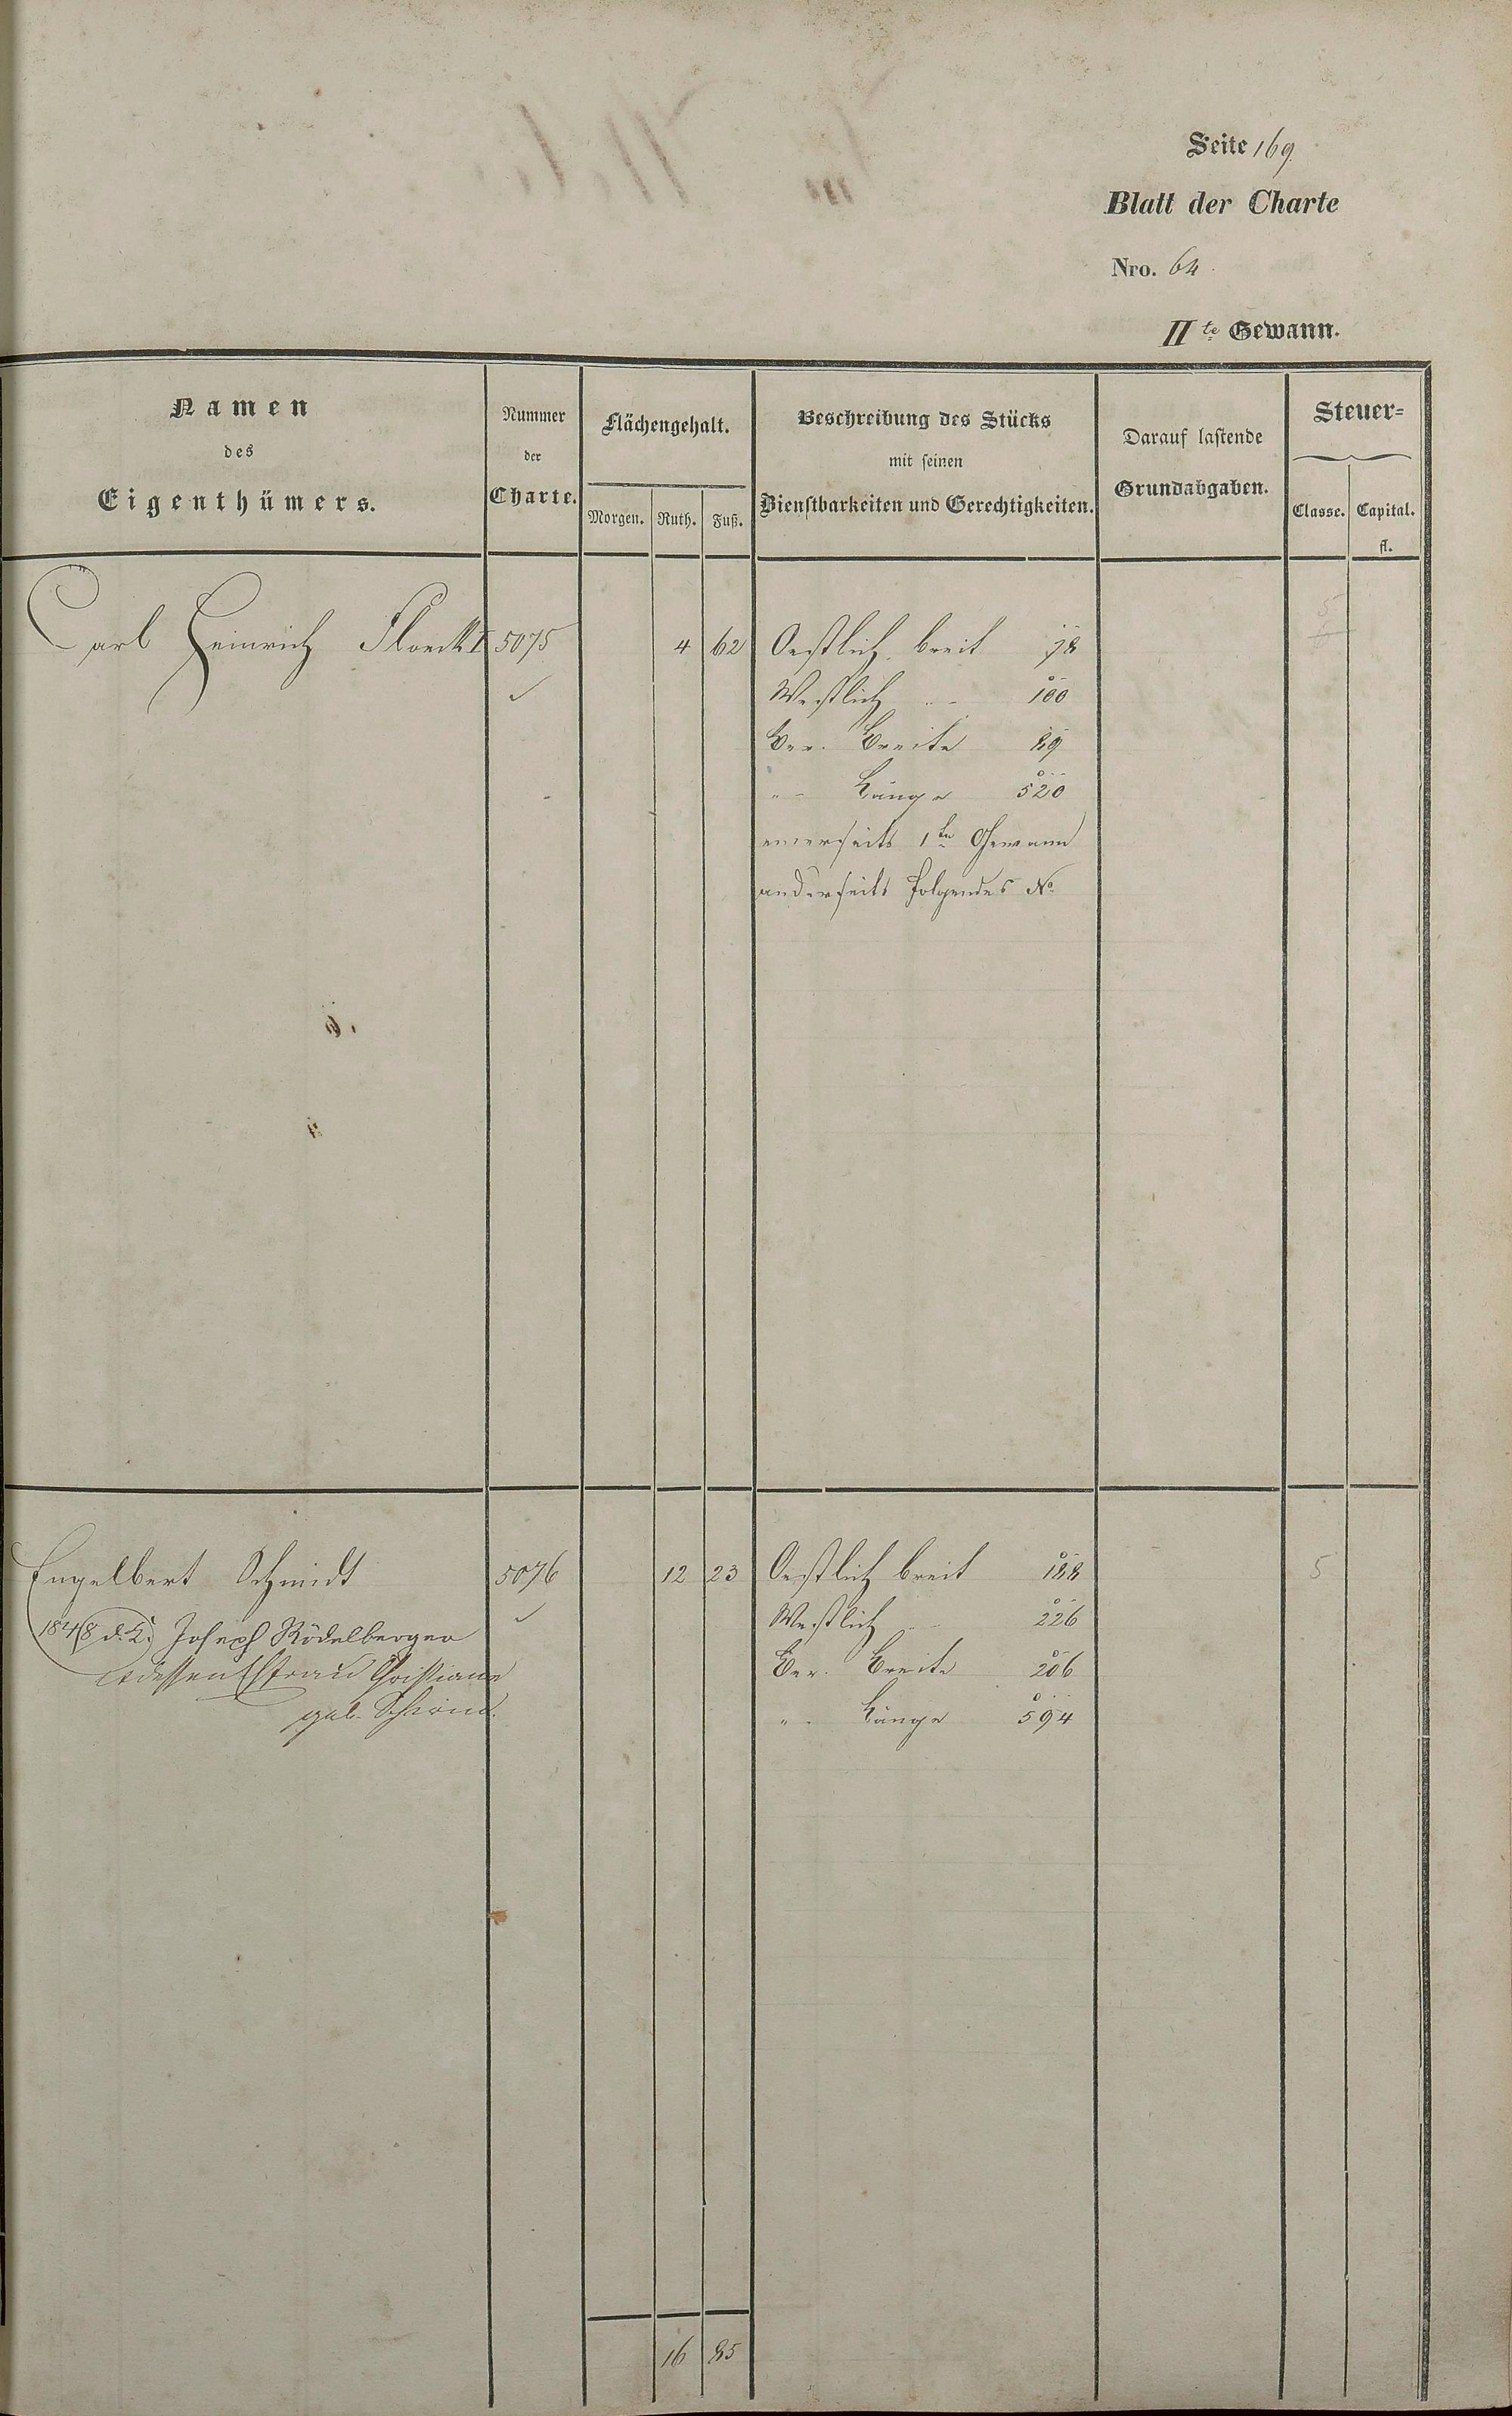 Seite 169
Blatt der Charte
Nro. 64
II te Gewann.
Namen des Eigenthümers.
Nummer der Charte.
Flächengehalt.
Morgen. Ruth. Fuß.
Beschreibung des Stücks mit seinen Dienstbarkeiten und Gerechtigkeiten.
Darauf lastende Grundabgaben.
Steuer=
Classe. Capital. fl.
Carl Heinrich Floeck I 5075 4 62 Oestlich breit 78
Westlich " 100
Ver. Breite 89
" Länge 520
einerseits 1te Gewann
anderseits folgendes No
Engelbert Schmidt 5076 12 23 Oestlich breit 188 5
1848 d. Joseph Rödelberger Westlich " 226
dessen Ehfrau Christiane Ver. Breite 206
geb. " Länge 594
16 85